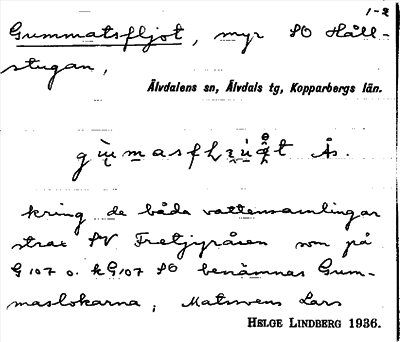 1-2
Gummatsfljot, myr SO Håll-
stugan,
Älvdalens sn, Älvdals tg, Kopparbergs län.
Ås.
kring de båda vattensamlingar
strax SV Fretjyråsen som på
G 107 o. kG 107 SO benämnas Gum-
maslokarna, Matsvens Lars
HELGE LINDBERG 1936.